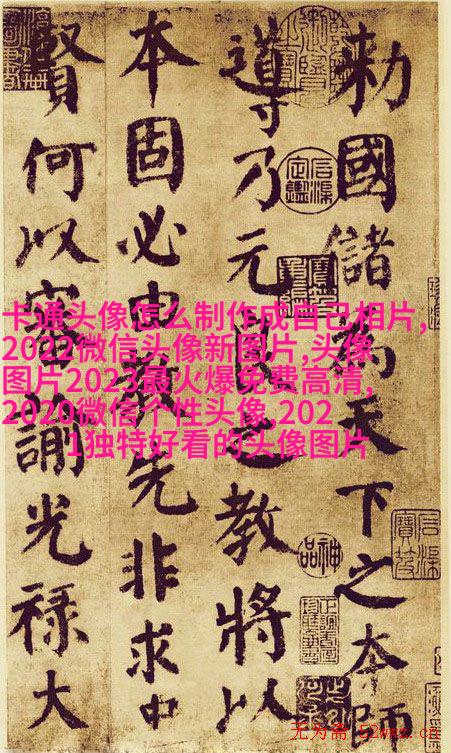 勅國儲為天下之本師
導乃元良之教將以
本固必由教先非求中
賢何以審諭光祿大
卡通头像怎么制作成自己相片,
2022微信头像新图片,头像
图片2023最火爆免费高清,
2020微信个性头像,202
1独特好看的头像图片
神品
无为斋 52wwz.cn